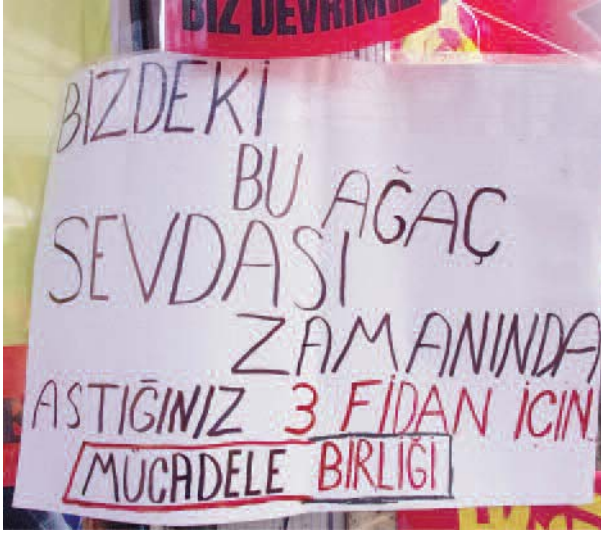 BİZ DEVRİMİZ
BİZDEKİ
BU AĞAÇ
SEVDASI
ZAMANINDA
ASTIĞINIZ 3 FİDAN İÇİN
MÜCADELE BİRLİĞİ